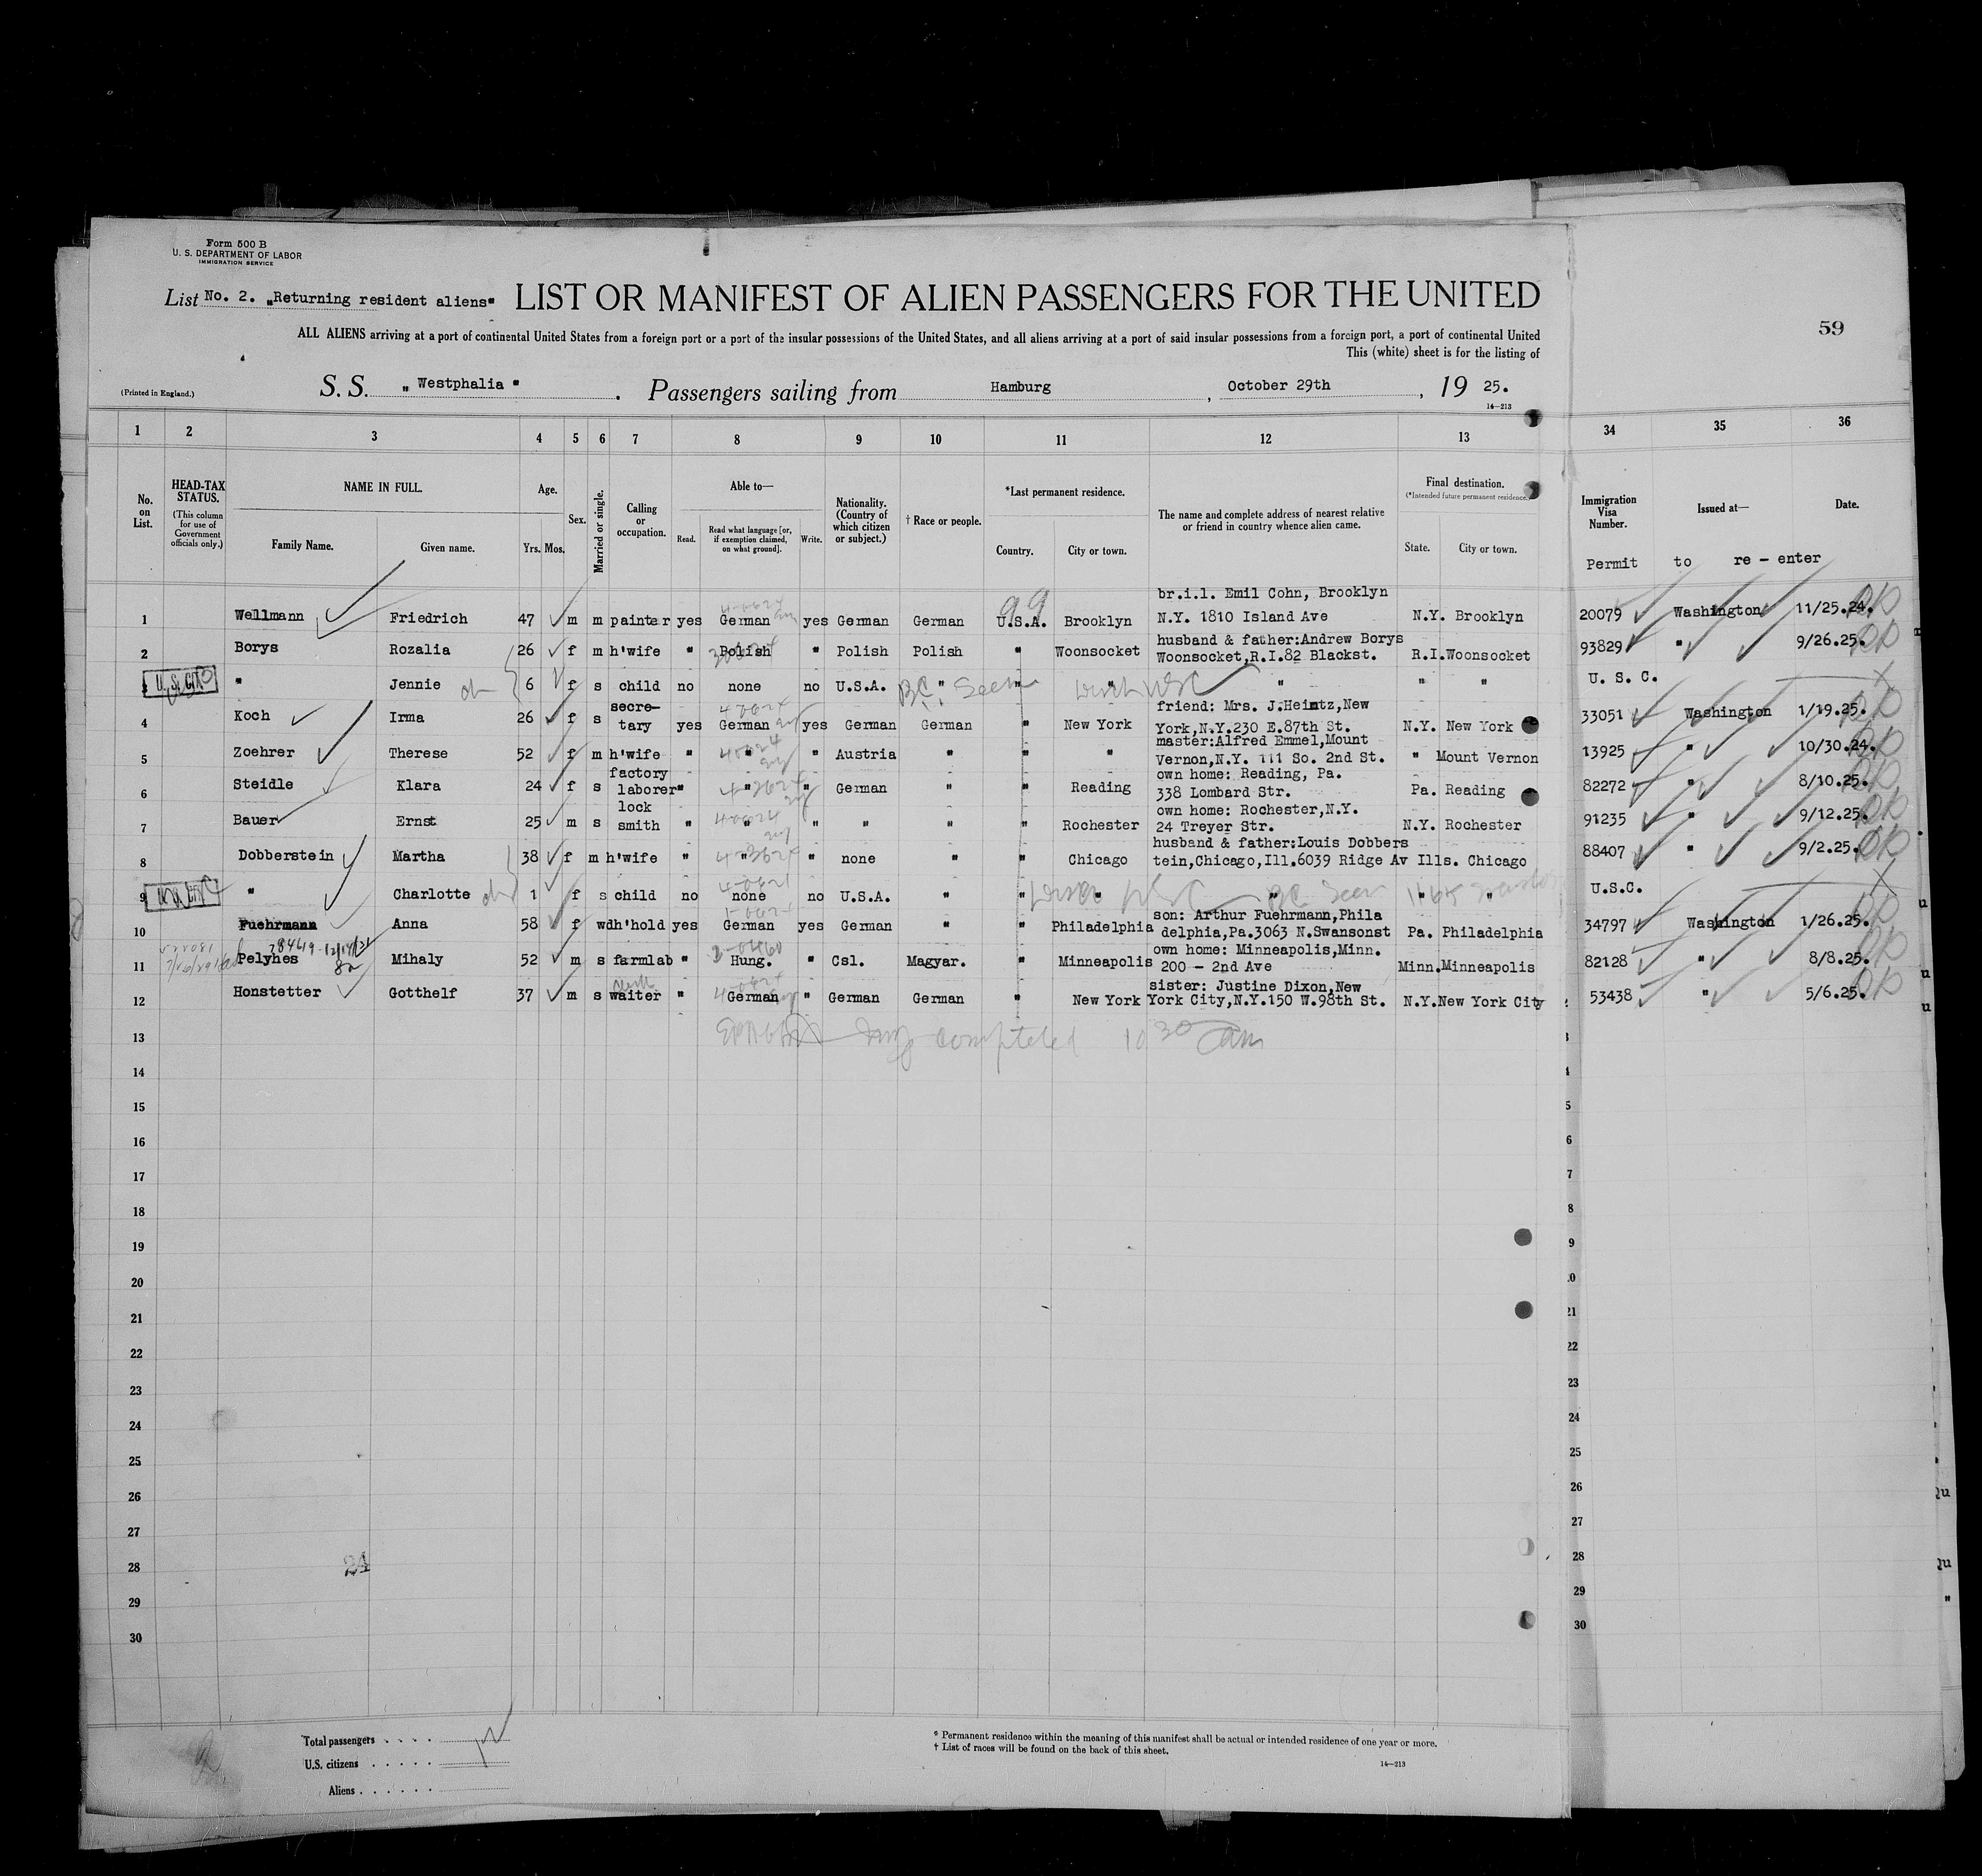 Form 500 B
U. S. DEPARTMENT OF LABOR
IMMIGRATION SERVICE
List No. 2. „Returning resident aliens" LIST OR MANIFEST OF ALIEN PASSENGERS FOR THE UNITED
59
ALL ALIENS arriving at a port of continental United States from a foreign port or a port of the insular possessions of the United States, and all aliens arriving at a port of said insular possessions from a foreign port, a port of continental United
This (white) sheet is for the listing of
(Printed in England.) S. S. „ Westphalia " . Passengers sailing from Hamburg , October 29th , 19 25.
14—213
1 2 3 4 5 6 7 8 9 10 11 12 13 34 35 36
No. on List. HEAD-TAX STATUS. (This column for use of Government officials only.) NAME IN FULL. Family Name. Given name. Age. Yrs. Mos. Sex. Married or single. Calling or occupation. Able to— Read. Read what language [or, if exemption claimed, on what ground]. Write. Nationality. (Country of which citizen or subject.) † Race or people. *Last permanent residence. Country. City or town. The name and complete address of nearest relative or friend in country whence alien came. Final destination. (*Intended future permanent residence.) State. City or town. Immigration Visa Number. Issued at— Date.
Permit to re - enter
br.i.l. Emil Cohn, Brooklyn
1 Wellmann Friedrich 47 m m painter yes German yes German German U.S.A. Brooklyn N.Y. 1810 Island Ave N.Y. Brooklyn 20079 Washington 11/25.24.
99
husband & father:Andrew Borys
2 Borys Rozalia 26 f m h'wife " Polish " Polish Polish " Woonsocket Woonsocket,R.I.82 Blackst. R.I. Woonsocket 93829 " 9/26.25.
3 U.S. CIT " Jennie 6 f s child no none no U.S.A. " " " " " " U. S. C.
BC Seen
secre- friend: Mrs. J.Heintz,New
4 Koch Irma 26 f s tary yes German yes German German " New York York,N.Y.230 E.87th St. N.Y. New York 33051 Washington 1/19.25.
master:Alfred Emmel,Mount
5 Zoehrer Therese 52 f m h'wife " " " Austria " " " Vernon,N.Y. 111 So. 2nd St. " Mount Vernon 13925 " 10/30.24.
factory own home: Reading, Pa.
6 Steidle Klara 24 f s laborer " " " German " " Reading 338 Lombard Str. Pa. Reading 82272 " 8/10.25.
lock own home: Rochester,N.Y.
7 Bauer Ernst 25 m s smith " " " " " " Rochester 24 Treyer Str. N.Y. Rochester 91235 " 9/12.25.
husband & father:Louis Dobbers
8 Dobberstein Martha 38 f m h'wife " " " none " " Chicago tein,Chicago,Ill.6039 Ridge Av Ills. Chicago 88407 " 9/2.25.
9 " Charlotte 1 f s child no none no U.S.A. " " " " " " U.S.C.
BC Seen
son: Arthur Fuehrmann,Phila
10 Fuehrmann Anna 58 f wd h'hold yes German yes German German " Philadelphia delphia,Pa.3063 N.Swansonst Pa. Philadelphia 34797 Washington 1/26.25.
own home: Minneapolis,Minn.
11 Pelyhes Mihaly 52 m s farmlab " Hung. " Csl. Magyar. " Minneapolis 200 - 2nd Ave Minn. Minneapolis 82128 " 8/8.25.
sister: Justine Dixon,New
12 Honstetter Gotthelf 37 m s waiter " German " German German " New York York City,N.Y.150 W.98th St. N.Y. New York City 53438 " 5/6.25.
13 completed 10 30 am
14
15
16
17
18
19
20
21
22
23
24
25
26
27
28 24
29
30
Total passengers . . . .
U.S. citizens . . . . .
Aliens . . . . . .
* Permanent residence within the meaning of this manifest shall be actual or intended residence of one year or more.
† List of races will be found on the back of this sheet.
14—213